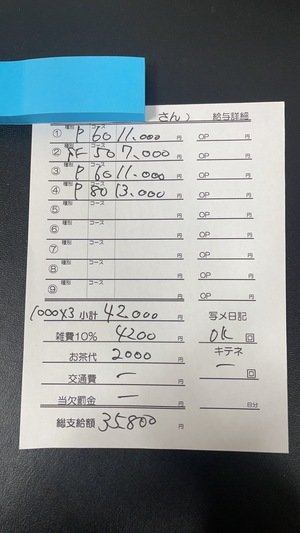 さん） 給与詳細
① 種別 P コース 60 11.000 円 OP 円
② 種別 F コース 50 7.000 円 OP 円
③ 種別 P コース 60 11.000 円 OP 円
④ 種別 P コース 80 13.000 円 OP 円
⑤ 種別 コース 円 OP 円
⑥ 種別 コース 円 OP 円
⑦ 種別 コース 円 OP 円
⑧ 種別 コース 円 OP 円
⑨ 種別 コース 円 OP 円
1000×3 小計 42.000 円 写メ日記
雑費10% 4200 円 OK 回
お茶代 2000 円 キテネ
交通費 ー 円 ー 回
当欠罰金 ー 円 日分
総支給額 35.800 円